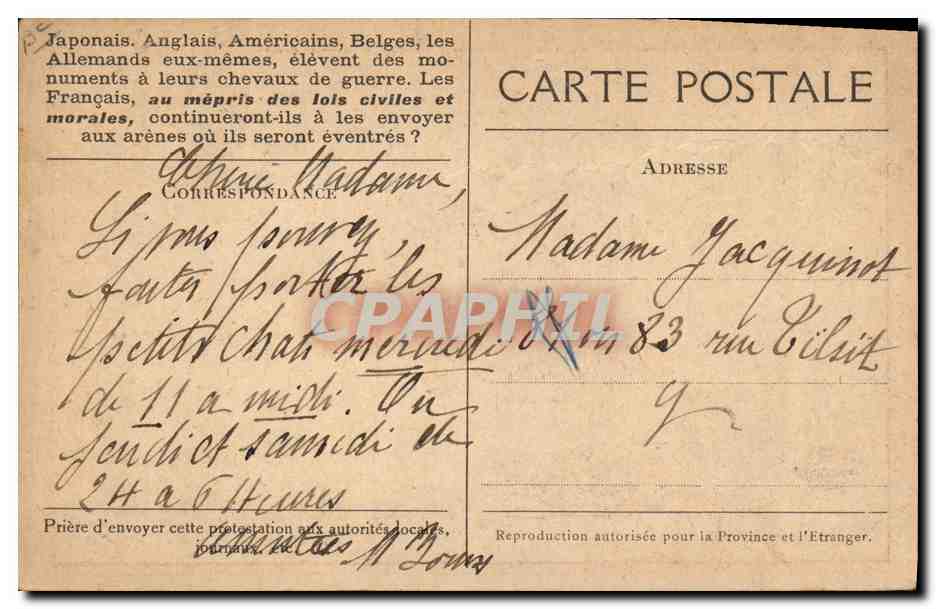 Japonais. Anglais, Américains, Belges, les
Allemands eux-mêmes, élèvent des mo-
numents à leurs chevaux de guerre. Les
Français, au mépris des lois civiles et
morales, continueront-ils à les envoyer
aux arènes où ils seront éventrés ?
Chère Madame,
CORRESPONDANCE
Si vous pouvez,
faites porter les
petits chats mercredi
de 11 a midi. Ou
jeudi et samedi de
2H a 6 Heures
Prière d'envoyer cette protestation aux autorités locales,
journaux
CARTE POSTALE
ADRESSE
Madame Jacquinot
83 rue Tilsit
Reproduction autorisée pour la Province et l'Etranger.
CPAPHIL